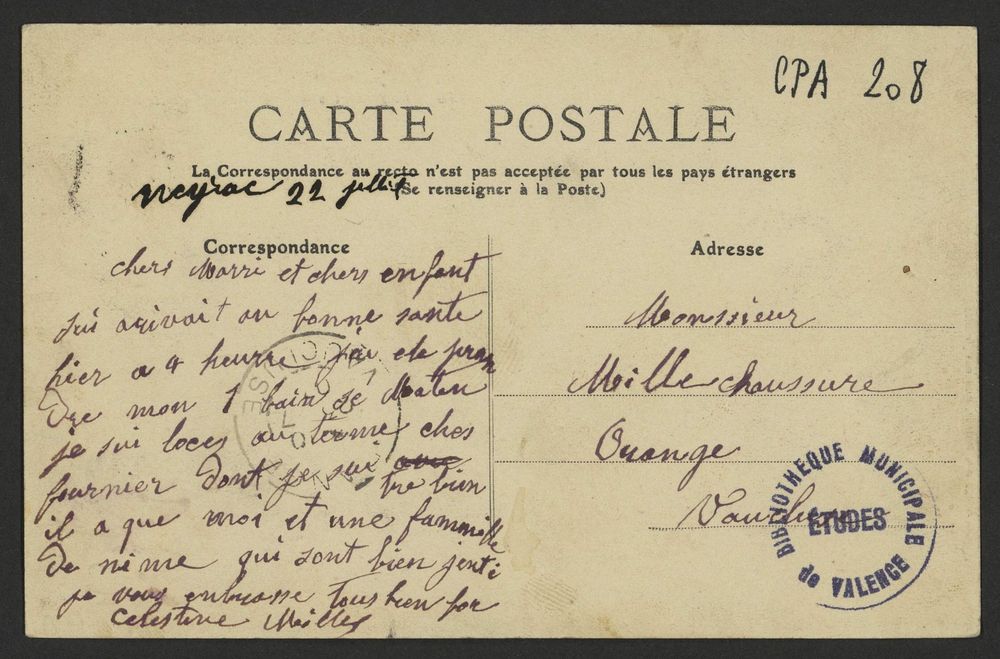 CPA 208
CARTE POSTALE
La Correspondance au recto n'est pas acceptée par tous les pays étrangers
(Se renseigner à la Poste)
neyrac 22 jullit
Correspondance
chers Marri et chers enfant
sui arivait an bonne sante
hier a 4 heurre j'ai ete pran
dre mon 1 bain se Maten
je sui loces au terme ches
fournier dont je sui tre bien
il a que moi et une fammille
de nime qui sont bien jenti
je vous enbrasse tous bien for
Celestine Mille
Adresse
Monssieur
Mille chaussure
Orange
Vaucluse
BIBLIOTHÈQUE MUNICIPALE
ÉTUDES
de VALENCE